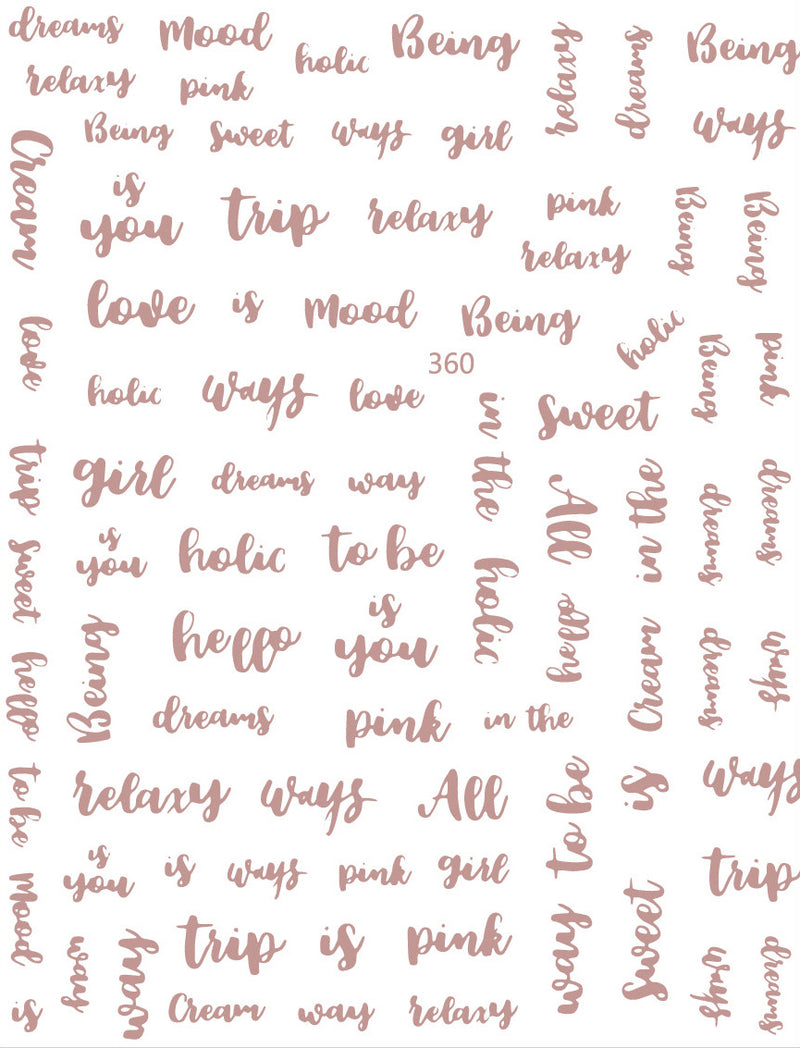 dreams Mood holic Being relaxy dreams Being
relaxy pink
Being sweet ways girl ways
Cream
is
you trip relaxy pink Being Being
relaxy
love is Mood Being
love holic Being pink
360
holic ways love in the sweet
trip girl dreams way All in the dreams dreams
is
you holic to be
sweet holic hello
is
hello you
hello Being Cream dreams ways
dreams pink in the
to be relaxy ways All way to be is ways
is
you is ways pink girl trip
Mood trip is pink sweet
way way ways dreams
is Cream way relaxy